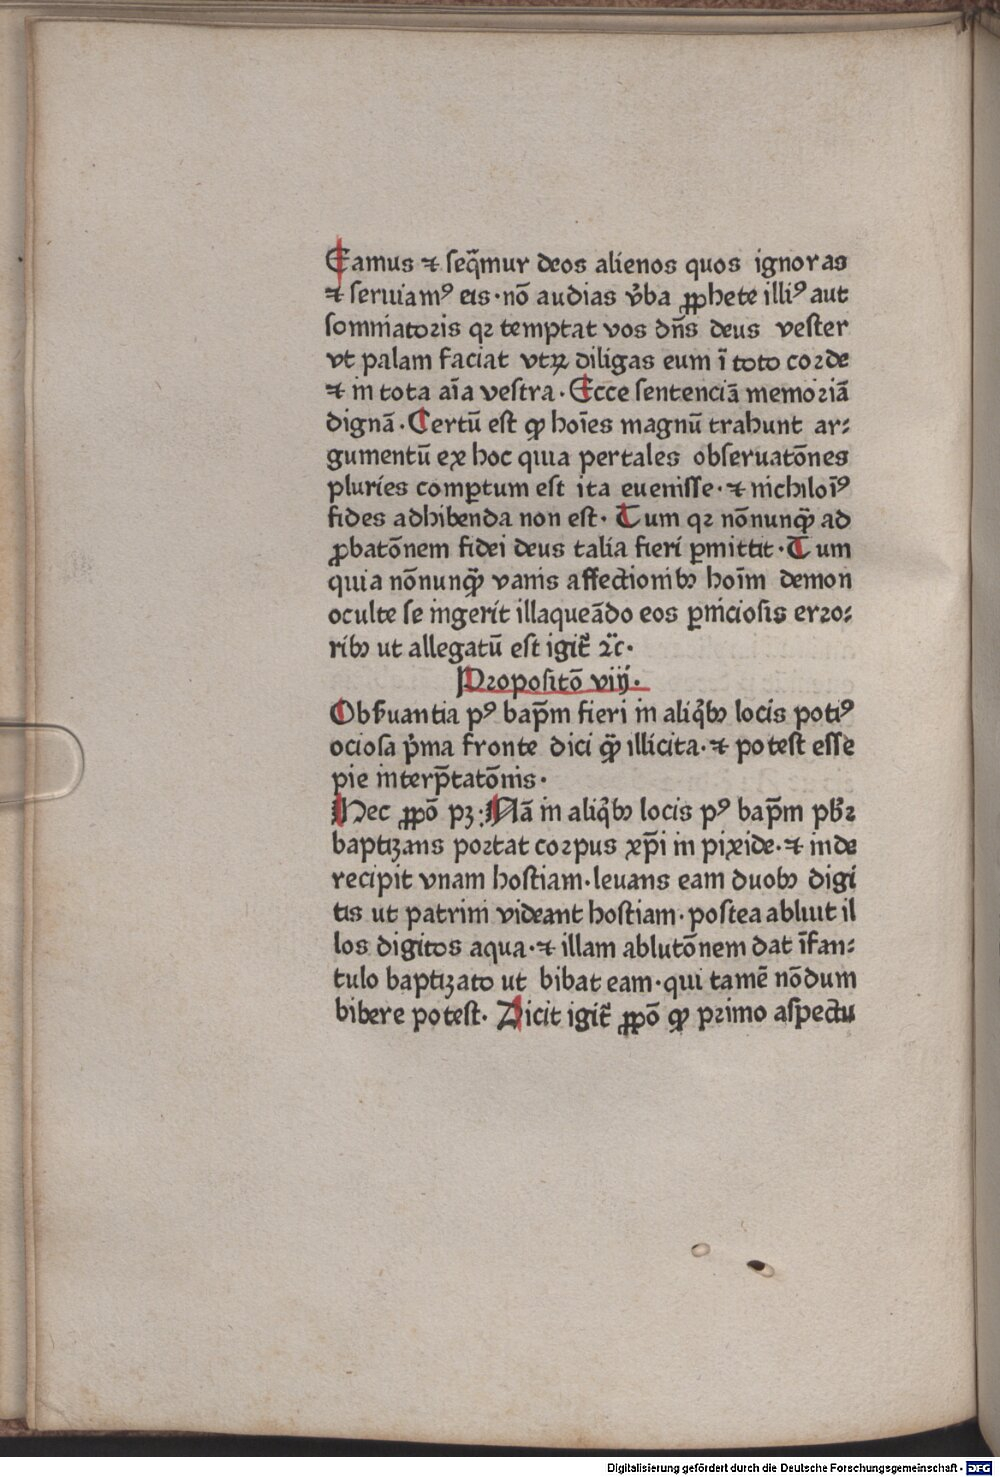 Eamus ⁊ seq̄mur deos alienos quos ignoras
⁊ seruiamꝰ eis· nō audias v̓ba ꝓphete illiꝰ aut
somniatoris qꝛ temptat vos dn̄s deus vester
vt palam faciat vtꝝ diligas eum ī toto corde
⁊ in tota aīa vestra· Ecce sentenciā memoriā
dignā· Certū est ꝙ hoīes magnū trahunt ar⸗
gumentū ex hoc quia pertales obseruatōnes
pluries comꝑtum est ita euenisse· ⁊ nichiloīꝰ
fides adhibenda non est· Tum qꝛ nōnunꝙ̄ ad
ꝓbatōnem fidei deus talia fieri ꝑmittit· Tum
quia nōnunꝙ̄ vanis affectionibꝫ hoīm demon
oculte se ingerit illaqueādo eos ꝑniciosis erro⸗
ribꝫ ut allegatū est igit̄ ꝛc̄·
Propositō viij·
Obẜuantia pꝰ bap̄m fieri in aliq̄bꝫ locis potiꝰ
ociosa p̓ma fronte dici ꝙ̄ illicita· ⁊ potest esse
pie interp̄tatōnis·
Hec ꝓpō pꝫ· Nā in aliq̄bꝫ locis pꝰ bap̄m pb̓ꝛ
baptizans portat corpus xp̄i in pixide· ⁊ inde
recipit vnam hostiam· leuans eam duobꝫ digi
tis ut patrini videant hostiam· postea abluit il
los digitos aqua· ⁊ illam ablutōnem dat īfan⸗
tulo baptizato ut bibat eam· qui tamē nōdum
bibere potest· Dicit igit̄ ꝓpō ꝙ primo aspectu
Digitalisierung gefördert durch die Deutsche Forschungsgemeinschaft - DFG